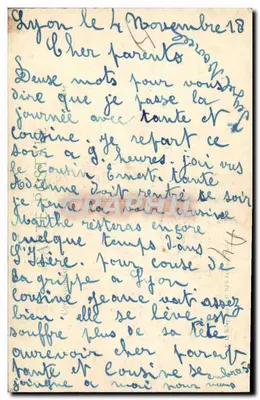 Lyon le 4 Novembre 18
Cher parents
Deuse mots pour vous
dire que je passe la
journée avec tante et
cousine je repart ce
soir a 9 heures. j'ai vus
le cousin Ernest. tante
doit rentré se soir
je
Marthe risteras encore
quelque temps dans
l'Isère. pour couse de
la grippe a Lyon
cousine jeane vat assez
bien. elle se lève est
souffre plus de sa tête
aurevoir cher parent
tante et Cousine se
joingue a moi pour vous